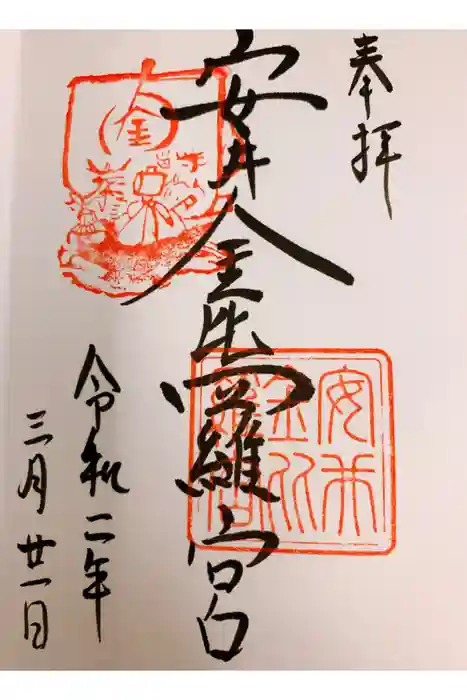 奉拝
安井金毘羅宮
令和二年
三月廿一日
金
安井
金比
羅宮